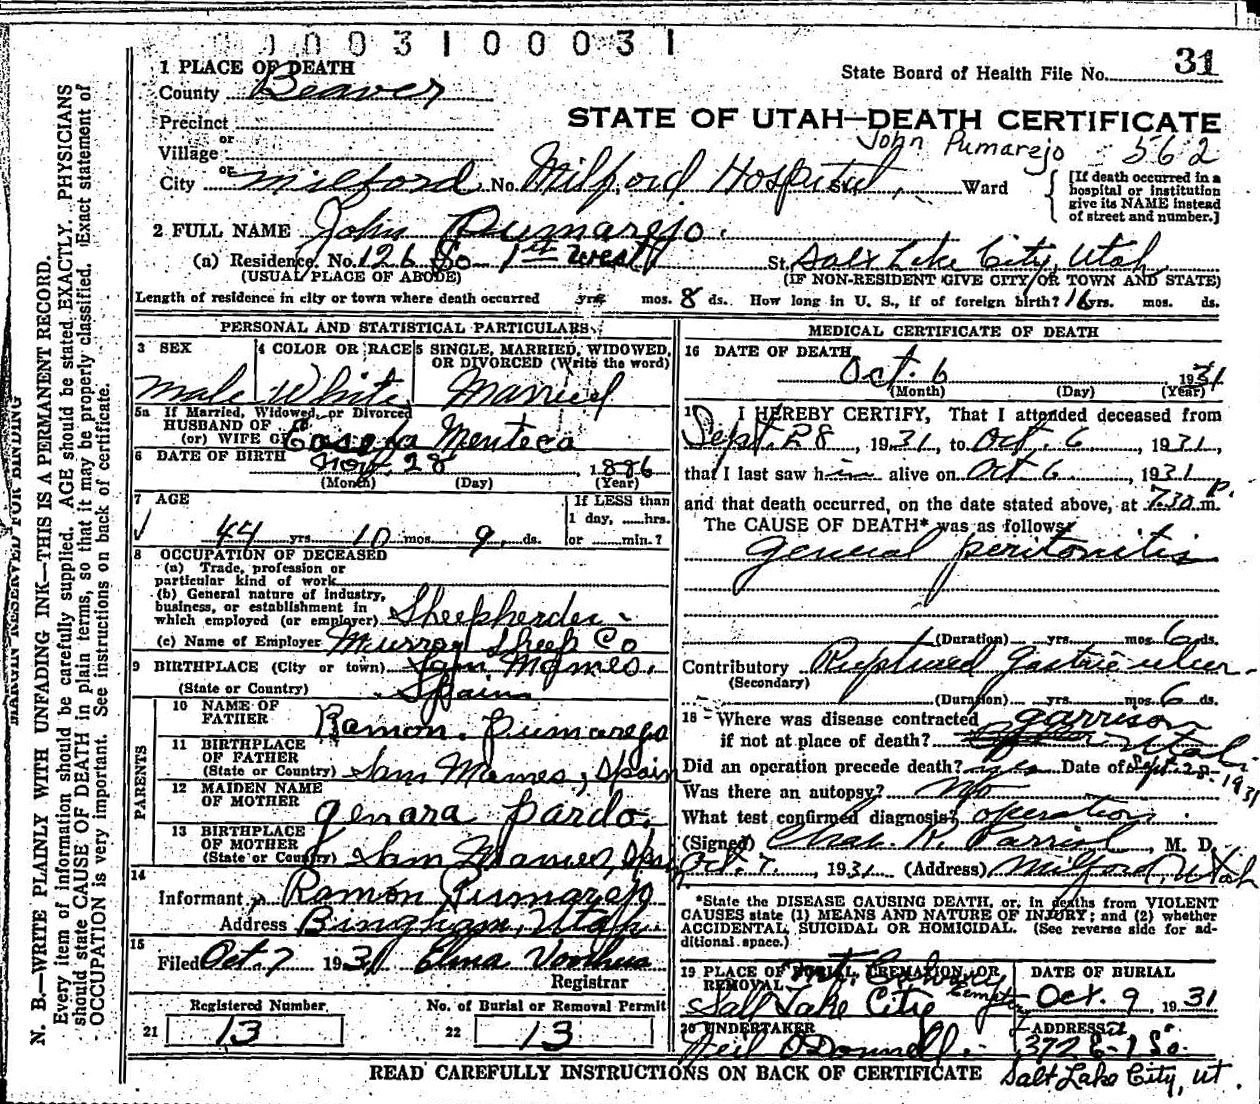 0 0 0 3 1 0 0 0 3 1
1 PLACE OF DEATH
State Board of Health File No. 31
County Beaver
Precinct
STATE OF UTAH—DEATH CERTIFICATE
or
Village
John Pumarejo 562
or
City Milford No. Milford Hospital St., Ward
[If death occurred in a hospital or institution give its NAME instead of street and number.]
2 FULL NAME John Pumarejo.
(a) Residence. No. 126 So - 1st West St. Salt Lake City, Utah
(USUAL PLACE OF ABODE) (IF NON-RESIDENT GIVE CITY OR TOWN AND STATE)
Length of residence in city or town where death occurred yrs. mos. 8 ds. How long in U. S., if of foreign birth? 16 yrs. mos. ds.
PERSONAL AND STATISTICAL PARTICULARS
3 SEX
male
4 COLOR OR RACE
White
5 SINGLE, MARRIED, WIDOWED, OR DIVORCED (Write the word)
Married
5a If Married, Widowed, or Divorced
HUSBAND OF
(or) WIFE OF Menteca
6 DATE OF BIRTH Nov. 28, 1886
(Month) (Day) (Year)
7 AGE
44 yrs. 10 mos. 9 ds.
If LESS than
1 day, ......hrs.
or ......min.?
8 OCCUPATION OF DECEASED
(a) Trade, profession or particular kind of work
(b) General nature of industry, business, or establishment in which employed (or employer) Sheepherder
(c) Name of Employer Murray Sheep Co
9 BIRTHPLACE (City or town) Sam Mames.
(State or Country) Spain
PARENTS
10 NAME OF FATHER Ramon. Pumarejo
11 BIRTHPLACE OF FATHER
(State or Country) Sam Mames, Spain
12 MAIDEN NAME OF MOTHER Genara Pardo.
13 BIRTHPLACE OF MOTHER
(State or Country) Sam Mames, Spain
14
Informant Ramon Pumarejo
Address Bingham, Utah.
15
Filed Oct. 7 1931 Elma
Registrar
Registered Number
21 13
No. of Burial or Removal Permit
22 13
MEDICAL CERTIFICATE OF DEATH
16 DATE OF DEATH
Oct. 6 1931
(Month) (Day) (Year)
17 I HEREBY CERTIFY, That I attended deceased from
Sept. 28, 1931, to Oct. 6, 1931,
that I last saw him alive on Oct 6, 1931
and that death occurred, on the date stated above, at 7:30 P. m.
The CAUSE OF DEATH* was as follows:
general peritonitis
(Duration) yrs. mos. 6 ds.
Contributory Ruptured gastric ulcer
(Secondary)
(Duration) yrs. mos. 6 ds.
18 Where was disease contracted
if not at place of death? Garrison Utah.
Did an operation precede death? yes Date of Sept. 28-1931
Was there an autopsy? No
What test confirmed diagnosis? operation
(Signed) Chas. R. M. D.
Oct. 7, 1931 (Address) Milford, Utah
*State the DISEASE CAUSING DEATH, or, in deaths from VIOLENT CAUSES state (1) MEANS AND NATURE OF INJURY; and (2) whether ACCIDENTAL, SUICIDAL OR HOMICIDAL. (See reverse side for additional space.)
19 PLACE OF BURIAL, CREMATION, OR REMOVAL Mt. Calvary
Salt Lake City
DATE OF BURIAL
Oct. 9, 1931
20 UNDERTAKER
Neil O'Donnell.
ADDRESS
372 E-1 So.
Salt Lake City, Ut.
READ CAREFULLY INSTRUCTIONS ON BACK OF CERTIFICATE
MARGIN RESERVED FOR BINDING
N. B.—WRITE PLAINLY WITH UNFADING INK—THIS IS A PERMANENT RECORD.
Every item of information should be carefully supplied. AGE should be stated EXACTLY. PHYSICIANS
should state CAUSE OF DEATH in plain terms, so that it may be properly classified. Exact statement of
OCCUPATION is very important. See instructions on back of certificate.